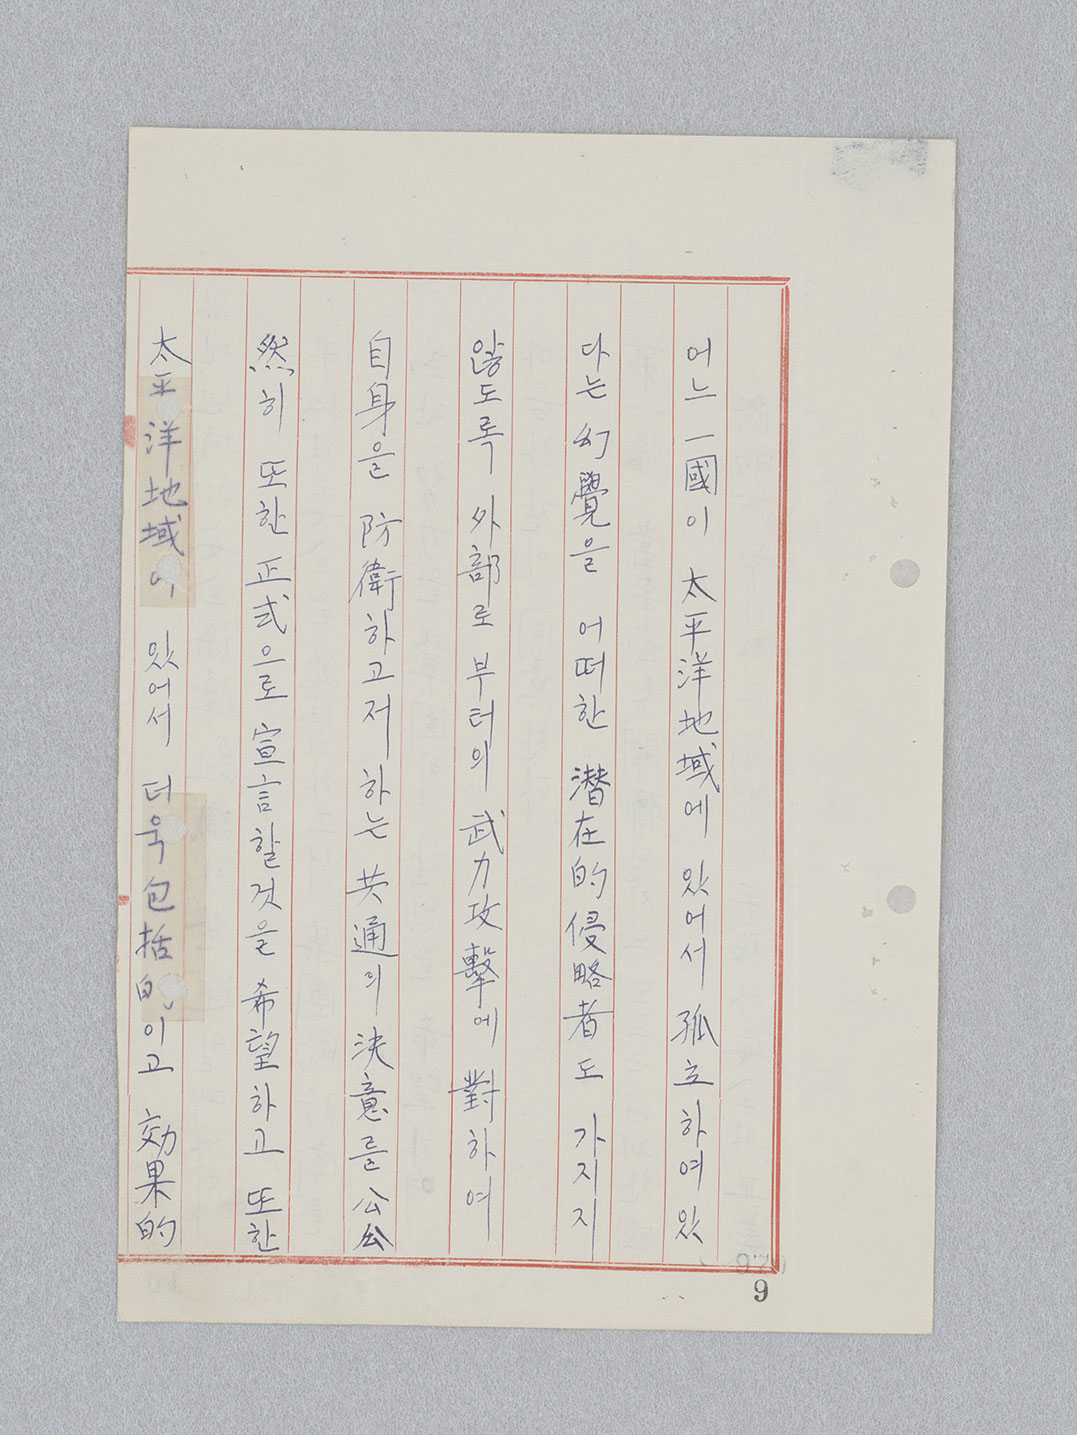 어느 一國이 太平洋地域에 있어서 孤立하여 있
다는 幻覺을 어떠한 潛在的侵略者도 가지지
않도록 外部로부터의 武力攻擊에 對하여
自身을 防衛하고저 하는 共通의 決意를 公公
然히 또한 正式으로 宣言할것을 希望하고 또한
太平洋地域이 있어서 더욱 包括的이고 効果的
9